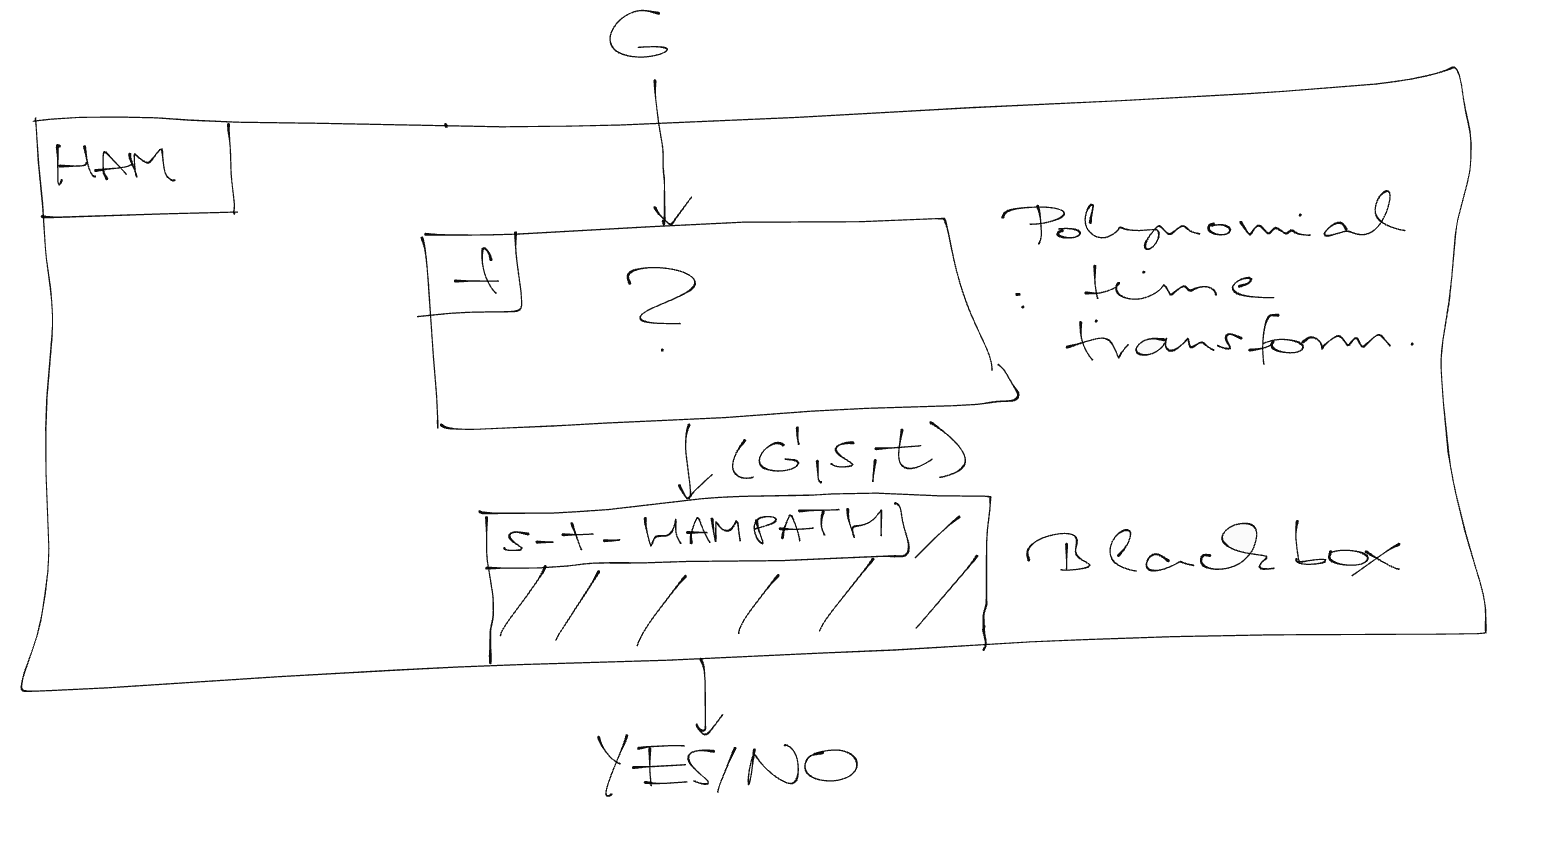 G
HAM
f
?
Polynomial
time
transform.
(G',s,t)
s-t-HAMPATH
Blackbox
YES/NO